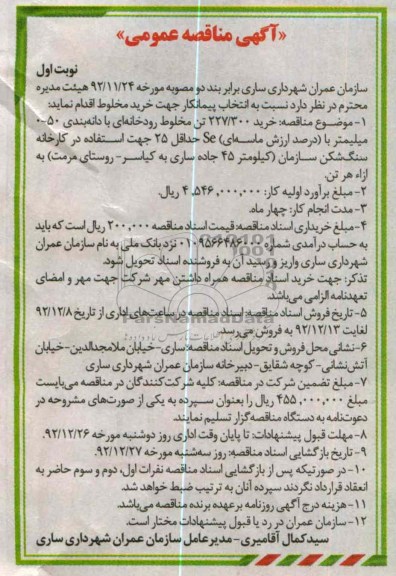 «آگهی مناقصه عمومی»
نوبت اول
سازمان عمران شهرداری ساری برابر بند دو مصوبه مورخه ۹۲/۱۱/۲۴ هیئت مدیره
محترم در نظر دارد نسبت به انتخاب پیمانکار جهت خرید مخلوط اقدام نماید:
۱- موضوع مناقصه: خرید ۲۲۷/۳۰۰ تن مخلوط رودخانه‌ای با دانه‌بندی ۵۰-۰
میلیمتر با (درصد ارزش ماسه‌ای) Se حداقل ۲۵ جهت استفاده در کارخانه
سنگ‌شکن سازمان (کیلومتر ۴۵ جاده ساری به کیاسر- روستای مرمت) به
ازاء هر تن.
۲- مبلغ برآورد اولیه کار: ۴,۵۴۶,۰۰۰,۰۰۰ ریال.
۳- مدت انجام کار: چهار ماه.
۴- مبلغ خریداری اسناد مناقصه: قیمت اسناد مناقصه ۲۰۰,۰۰۰ ریال است که باید
به حساب درآمدی شماره نزد بانک ملی به نام سازمان عمران
شهرداری ساری واریز و رسید آن به فروشنده اسناد تحویل شود.
تذکر: جهت خرید اسناد مناقصه همراه داشتن مهر شرکت جهت مهر و امضای
تعهدنامه الزامی می‌باشد.
۵- تاریخ فروش اسناد مناقصه: اسناد مناقصه در ساعت‌های اداری از تاریخ ۹۲/۱۲/۸
لغایت ۹۲/۱۲/۱۳ به فروش می‌رسد.
۶- نشانی محل فروش و تحویل اسناد مناقصه: ساری- خیابان ملامجدالدین- خیابان
آتش‌نشانی- کوچه شقایق- دبیرخانه سازمان عمران شهرداری ساری
۷- مبلغ تضمین شرکت در مناقصه: کلیه شرکت‌کنندگان در مناقصه می‌بایست
مبلغ ۴۵۵,۰۰۰,۰۰۰ ریال را بعنوان سپرده به یکی از صورت‌های مشروحه در
دعوت‌نامه به دستگاه مناقصه‌گزار تسلیم نمایند.
۸- مهلت قبول پیشنهادات: تا پایان وقت اداری روز دوشنبه مورخه ۹۲/۱۲/۲۶.
۹- تاریخ بازگشایی اسناد مناقصه: روز سه‌شنبه مورخه ۹۲/۱۲/۲۷.
۱۰- در صورتیکه پس از بازگشایی اسناد مناقصه نفرات اول، دوم و سوم حاضر به
انعقاد قرارداد نگردند سپرده آنان به ترتیب ضبط خواهد شد.
۱۱- هزینه درج آگهی روزنامه برعهده برنده مناقصه می‌باشد.
۱۲- سازمان عمران در رد یا قبول پیشنهادات مختار است.
سیدکمال آقامیری- مدیرعامل سازمان عمران شهرداری ساری